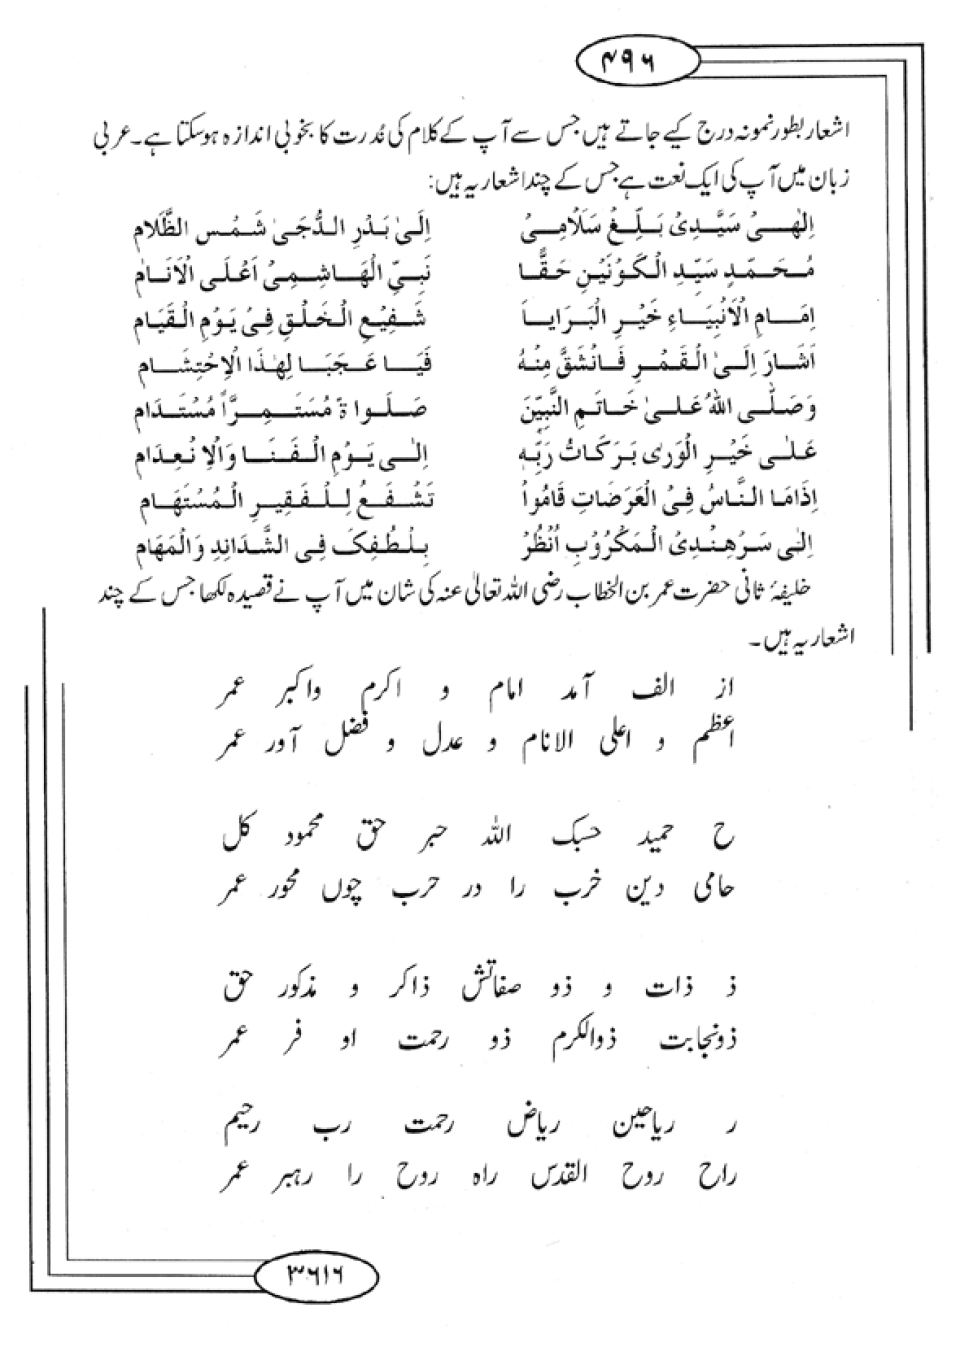 ۴۹۶
اشعار بطور نمونہ درج کیے جاتے ہیں جس سے آپ کے کلام کی نُدرت کا بخوبی اندازہ ہوسکتا ہے۔ عربی
زبان میں آپ کی ایک نعت ہے جس کے چند اشعار یہ ہیں:
اِلٰهِیْ سَیِّدِیْ بَلِّغْ سَلَامِیْ اِلَیٰ بَدْرِ الدُّجَیٰ شَمْسِ الظَّلَامِ
مُحَمَّدٍ سَیِّدِ الْکَوْنَیْنِ حَقًّا نَبِیِّ الْهَاشِمِیْ اَعْلَی الْاَنَامٖ
اِمَامِ الْاَنْبِیَاءِ خَیْرِ الْبَرَایَا شَفِیْعِ الْخَلْقِ فِیْ یَوْمِ الْقَیَامِ
اَشَارَ اِلَیٰ الْقَمَرِ فَانْشَقَّ مِنْهُ فَیَا عَجَبَا لِهٰذَا الْاِحْتِشَامٖ
وَصَلَّی اللّٰهُ عَلیٰ خَاتَمِ النَّبِیّٖنَ صَلَوٰاةً مُسْتَمِرًّا مُسْتَدَامٖ
عَلٰی خَیْرِ الْوَریٰ بَرَکَاتُ رَبِّهٖ اِلٰی یَوْمِ الْفَنَا وَالْاِنْعِدَامٖ
اِذَامَا النَّاسُ فِیْ الْعَرَضَاتِ قَامُوْا تَشْفَعُ لِلْفَقِیْرِ الْمُسْتَهَامٖ
اِلیٰ سَرْهِنْدِیْ الْمَکْرُوْبِ اُنْظُرْ بِلُطْفِکَ فِی الشَّدَائِدِ وَالْمَهَامٖ
خلیفۂ ثانی حضرت عمر بن الخطاب رضی اللہ تعالیٰ عنہ کی شان میں آپ نے قصیدہ لکھا جس کے چند
اشعار یہ ہیں۔
از الف آمد امام و اکرم واکبر عمر
اعظم و اعلی الانام و عدل و فضل آور عمر
ح حمید حسبک اللہ حبر حق محمود کل
حامی دین خرب را در حرب چوں محور عمر
ذ ذات و ذو صفاتش ذاکر و مذکور حق
ذونجابت ذوالکرم ذو رحمت او فر عمر
ر ریاحین ریاض رحمت رب رحیم
راح روح القدس راہ روح را رہبر عمر
۳۶۱۶